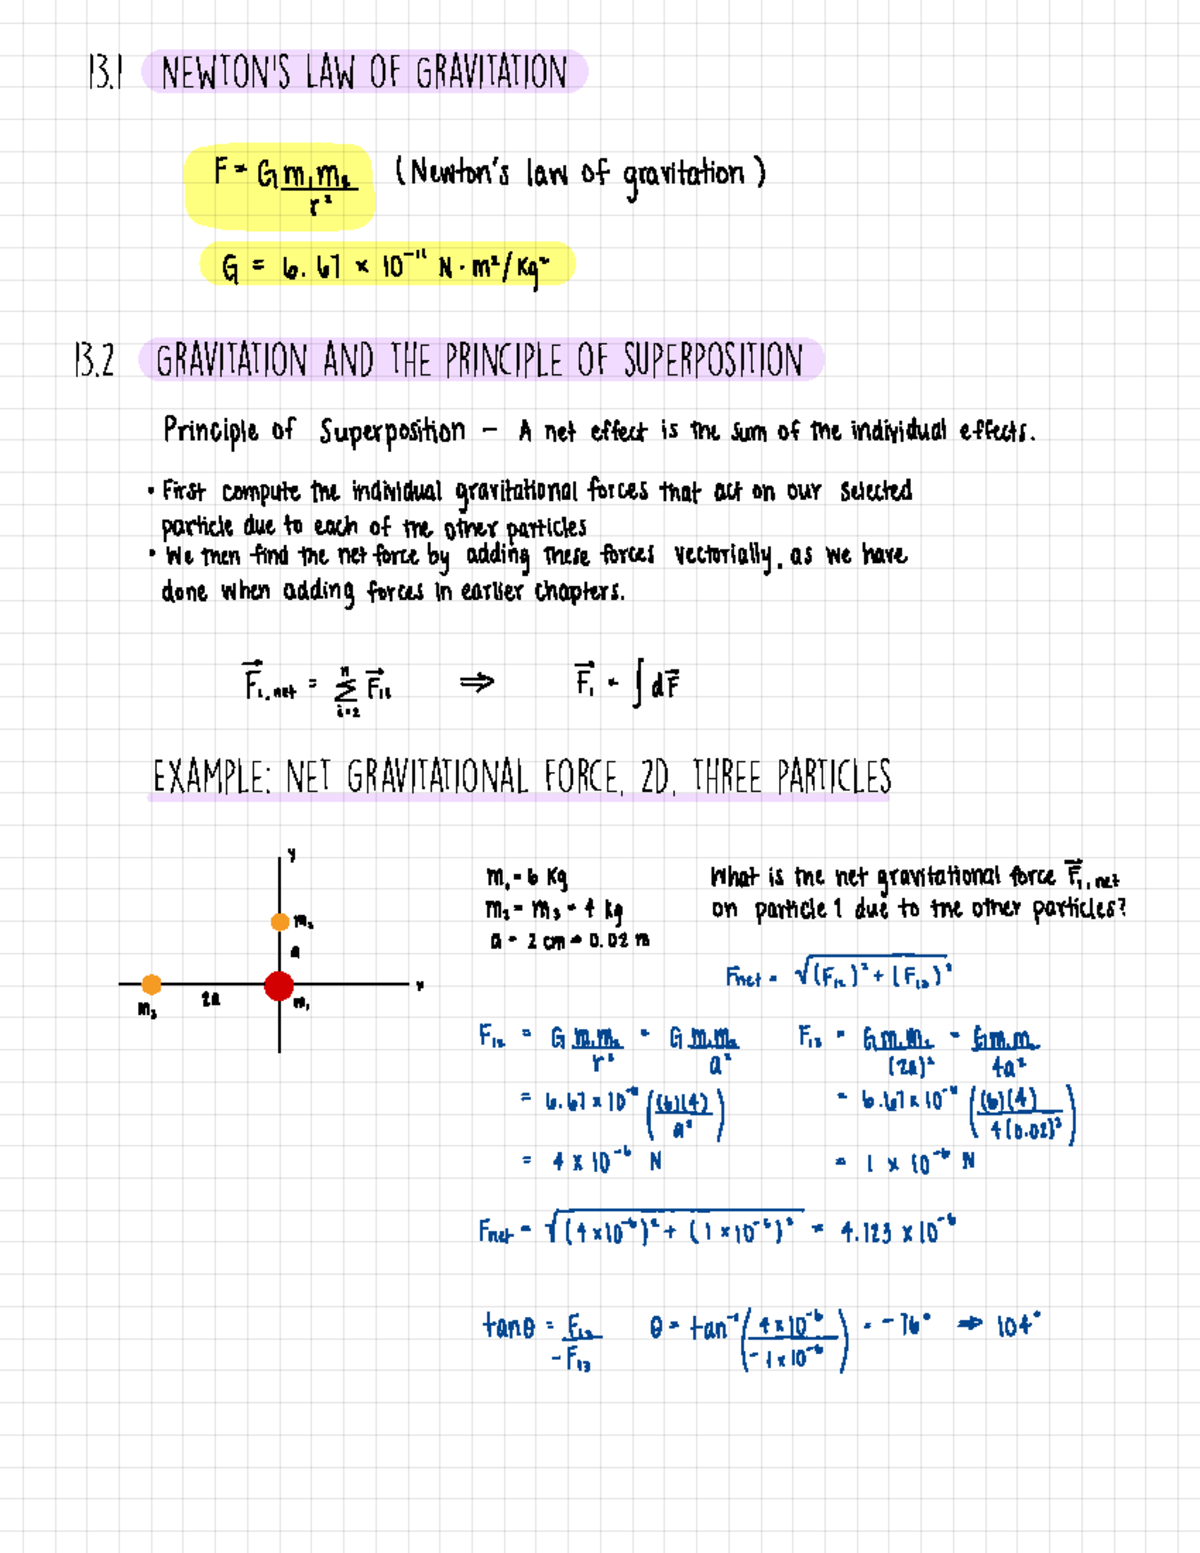 13.1 NEWTON'S LAW OF GRAVITATION
F = G m₁m₂ / r² (Newton's law of gravitation)
G = 6.67 × 10⁻¹¹ N·m²/kg²
13.2 GRAVITATION AND THE PRINCIPLE OF SUPERPOSITION
Principle of Superposition – A net effect is the sum of the individual effects.
• First compute the individual gravitational forces that act on our selected
particle due to each of the other particles
• We then find the net force by adding these forces vectorially, as we have
done when adding forces in earlier chapters.
F⃗₁,net = Σ (i=2 to n) F⃗₁ᵢ ⇒ F⃗₁ = ∫dF⃗
EXAMPLE: NET GRAVITATIONAL FORCE, 2D, THREE PARTICLES
y
m₂
a
x
m₃
2a
m₁
m₁ = 6 kg
m₂ = m₃ = 4 kg
a = 2 cm → 0.02 m
What is the net gravitational force F⃗₁,net
on particle 1 due to the other particles?
Fnet = √((F₁₂)² + (F₁₃)²)
F₁₂ = G m₁m₂ / r² = G m₁m₂ / a²
= 6.67 × 10⁻¹¹ ((6)(4) / a²)
= 4 × 10⁻⁶ N
F₁₃ = G m₁m₃ / (2a)² = G m₁m₃ / 4a²
= 6.67 × 10⁻¹¹ ((6)(4) / 4(0.02)²)
= 1 × 10⁻⁶ N
Fnet = √((4×10⁻⁶)² + (1×10⁻⁶)²) = 4.123 × 10⁻⁶
tanθ = F₁₂ / -F₁₃ θ = tan⁻¹(4×10⁻⁶ / -1×10⁻⁶) = -76° → 104°